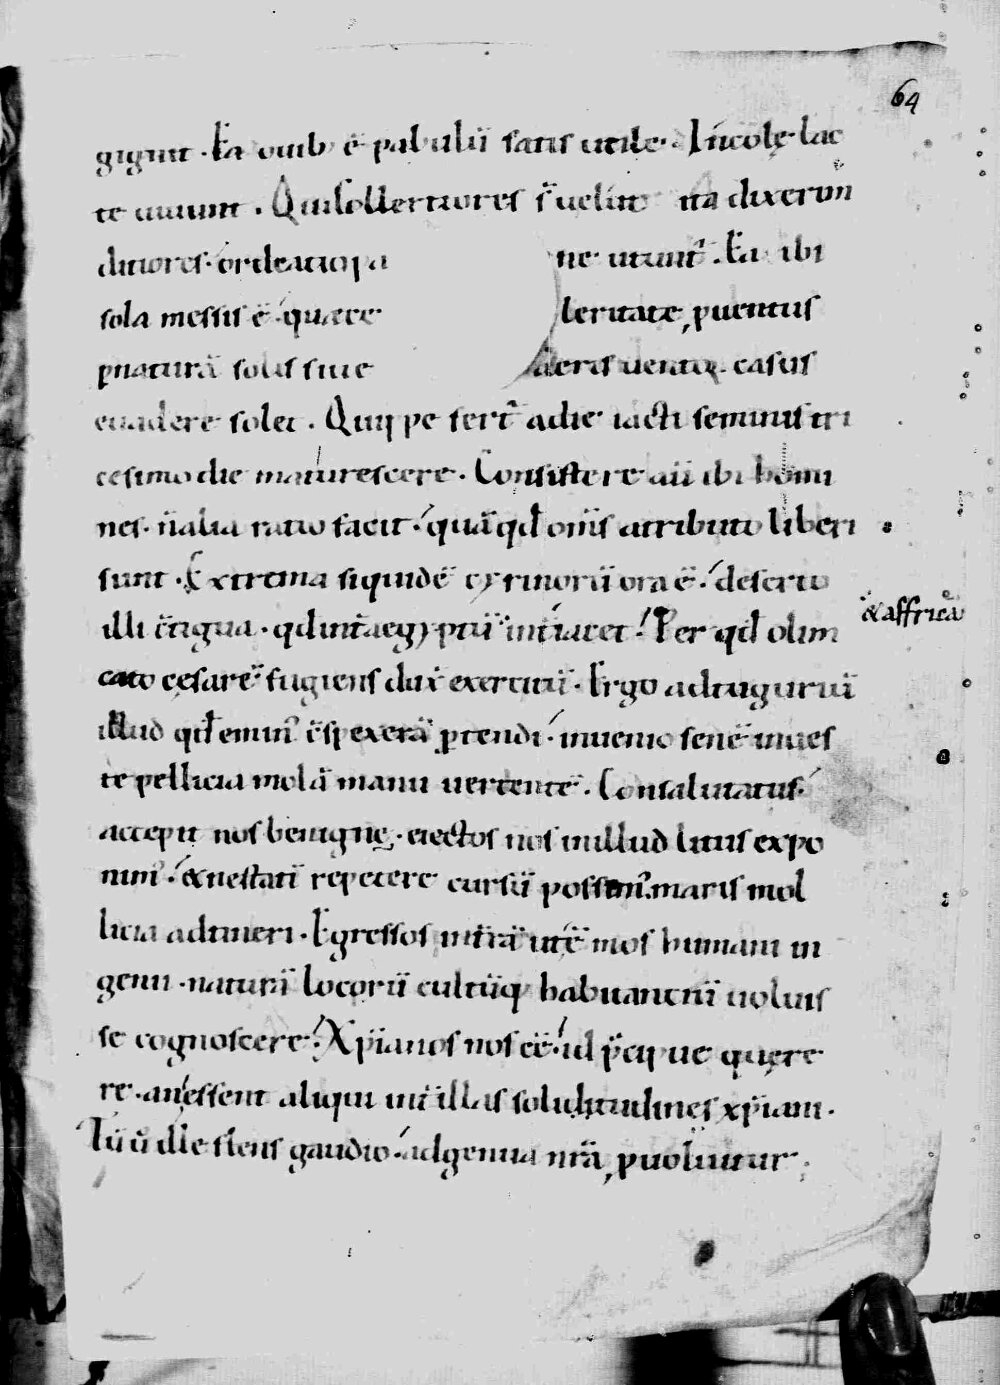 64
gignit. Ea ouib; ē pabulū satis utile. Incolę lac
te uiuunt. Qui sollertiores s̄ uel ut ita dixerim
ditiores. ordeatio pa ne utunt᷑. Ea ibi
sola messis ē. quæ ce leritate ꝓuentus
ꝑ naturā solis siue aeris uentoꝝ casus
euadere solet. Quippe fert᷑ a die iacti seminis tri
cesimo die maturescere. Consistere aū ibi homi
nes. n̄ alia ratio facit. quā qđ om̄s a tributo liberi
sunt. Extrema siquidē cyrinorū ora ē. deserto
illi c̄tigua. qđ int̄ aegyptū int̄iacet. Per qđ olim
& affricā
cato cęsarē fugiens dux̄ exercitū. Ergo ad tugurium̄
illud qđ emin᷑ c̄spexerā ꝑtendi. inuenio senē in ues
te pellicia molā manu uertentē. Consalutatus.
accepit nos benigne. eiectos nos in illud litus expo
nim᷑. & ne statī repetere cursū possem᷑. maris mol
licia adtineri. Egressos in t̄rā utē mos humani in
genii. naturā locorū cultūq; habitantiū uoluis
se cognoscere. Xp̄ianos nos eē. id p̄cipue quęre
re. an ęssent aliqui int̄ illas solitudines xp̄iani.
Tū ū ille flens gaudio. ad genua nr̄a ꝓuoluitur.